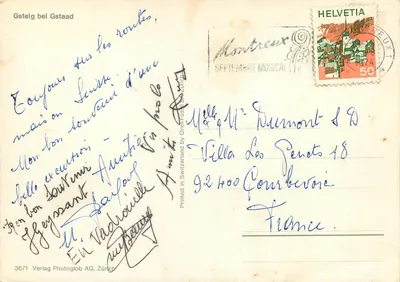 Gsteig bei Gstaad
Toujours sur les routes,
mais en Suisse.
Mon bon souvenir d'une
belle excursion -
Amitiés
un bon souvenir
En Vadrouille
Amitiés
Printed in Switzerland by
3671 Verlag Photoglob AG, Zürich
Montreux
SEPTEMBRE MUSICAL
HELVETIA
50
Mlle Dumont S D
Villa Les Genets 18
92400 Courbevoie
France